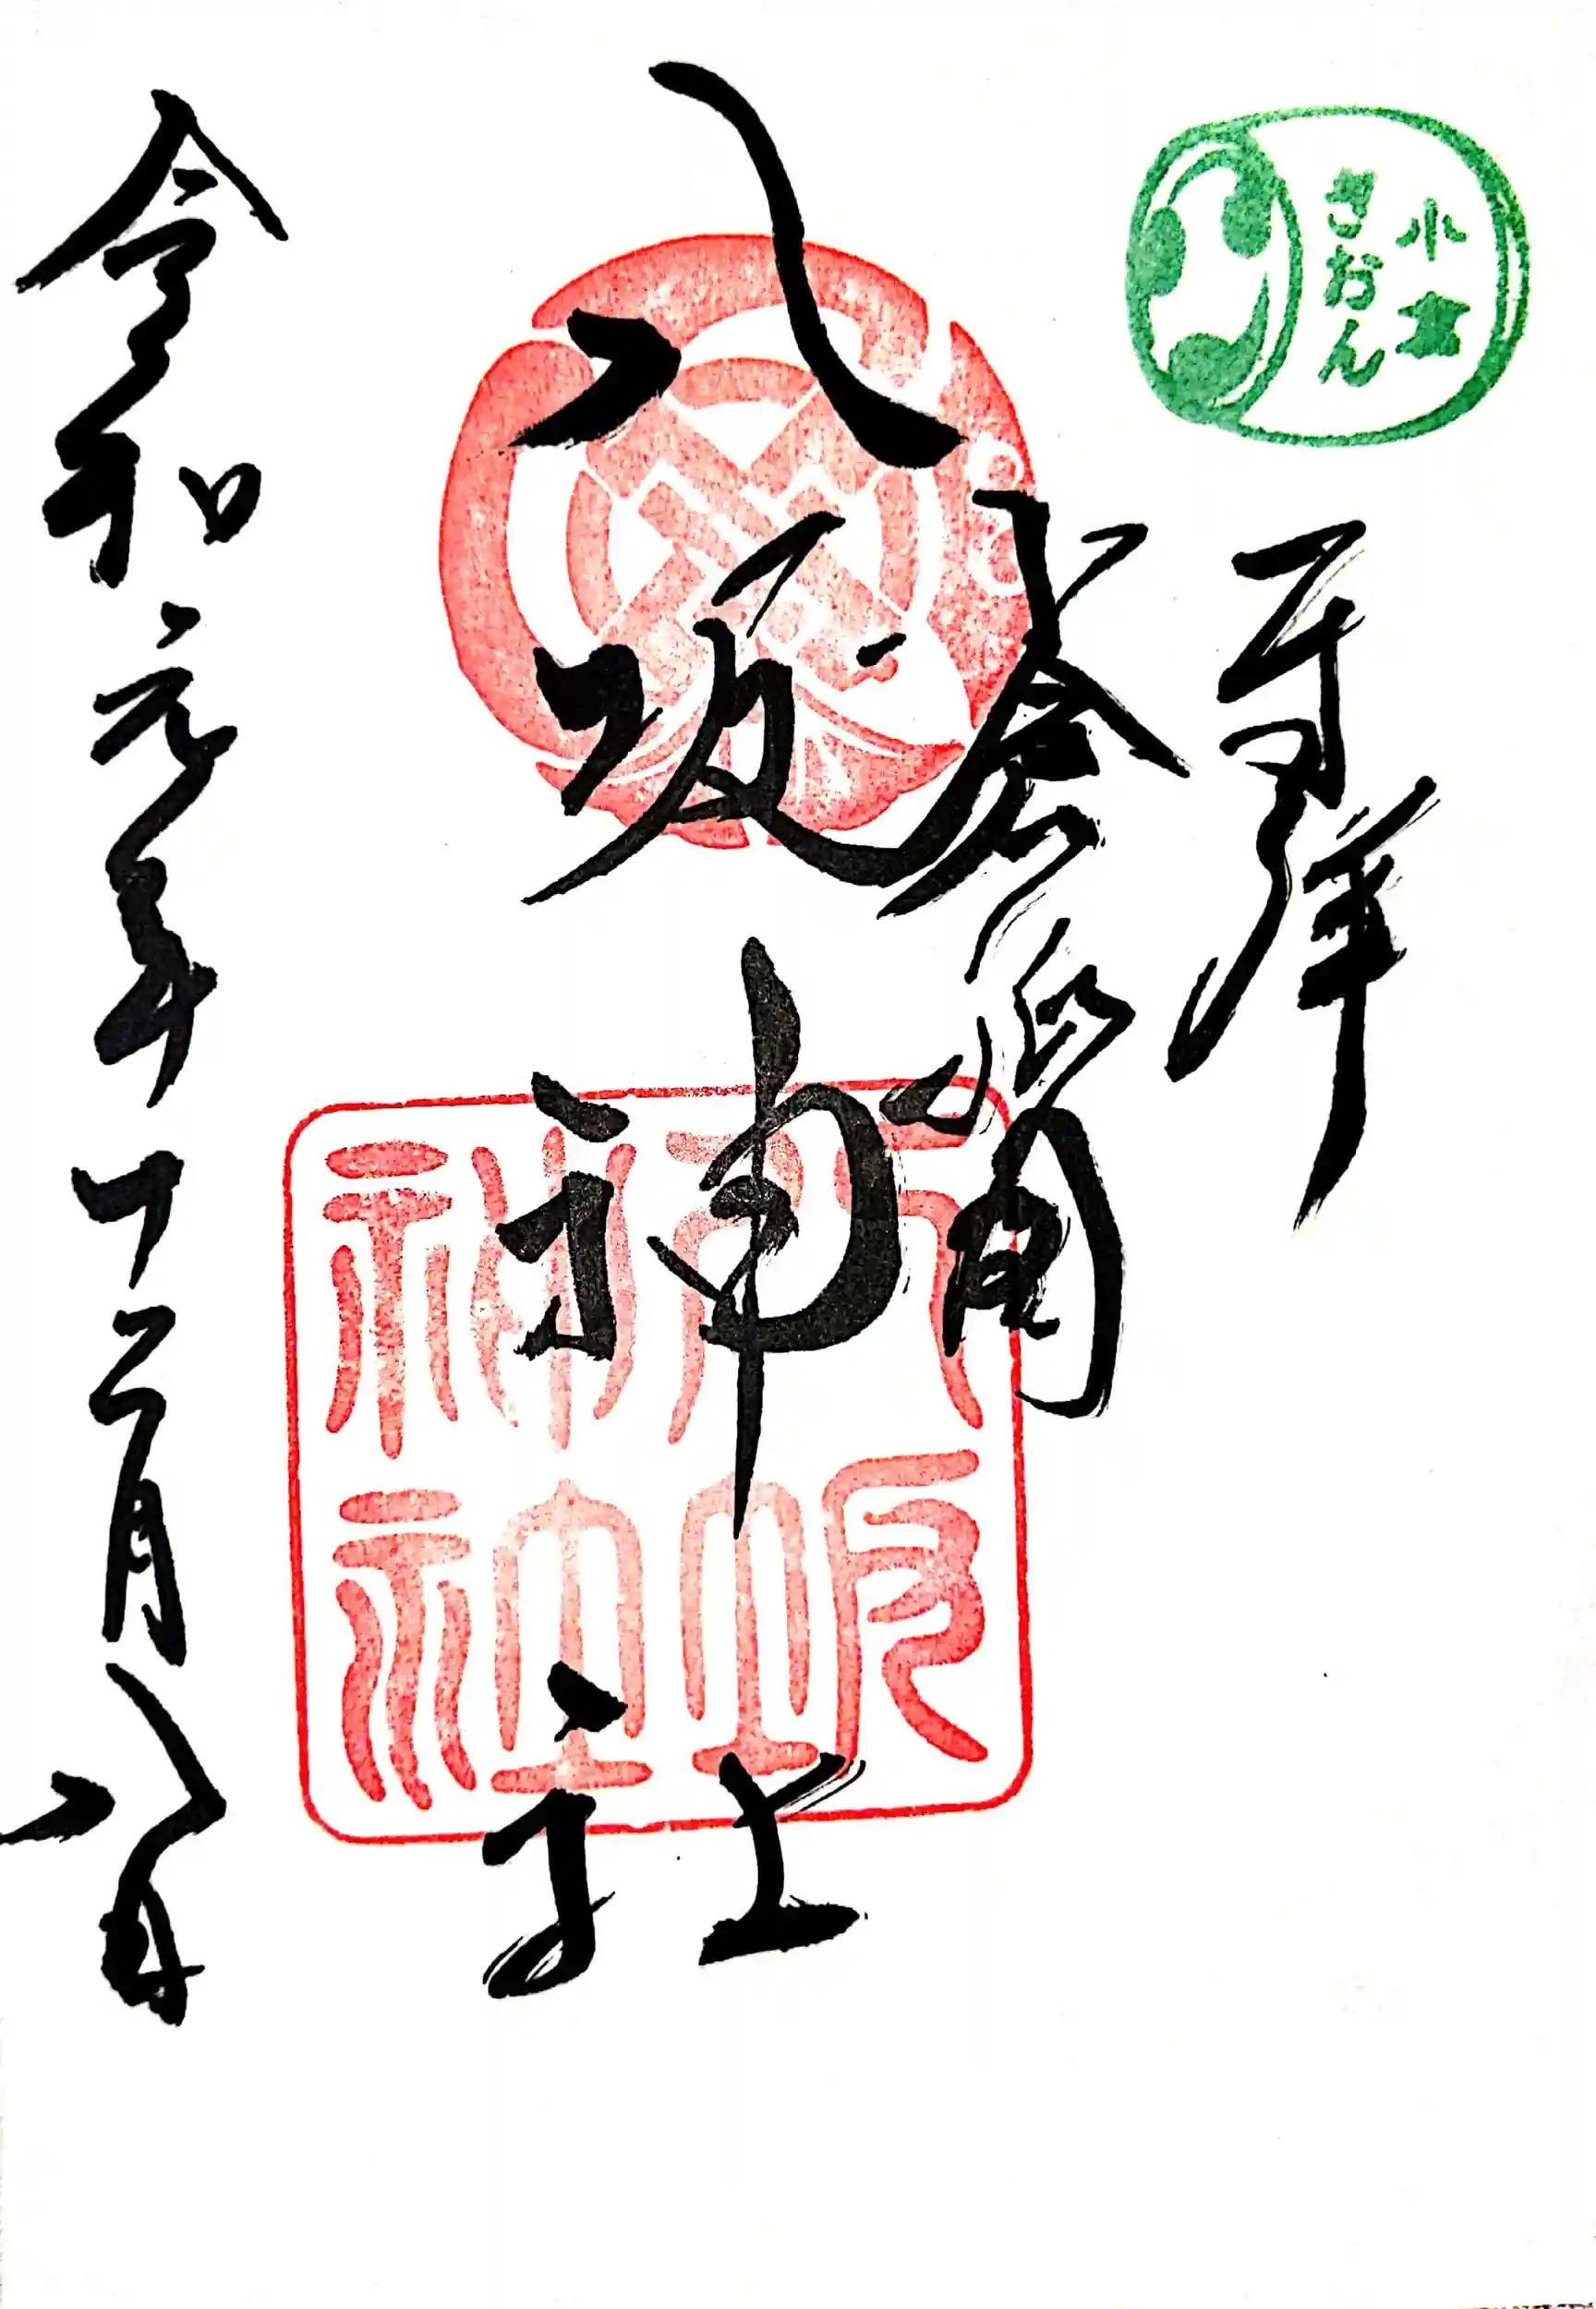 小倉
ぎおん
奉拝
八坂神社
八坂
神社
令和元年十二月八日